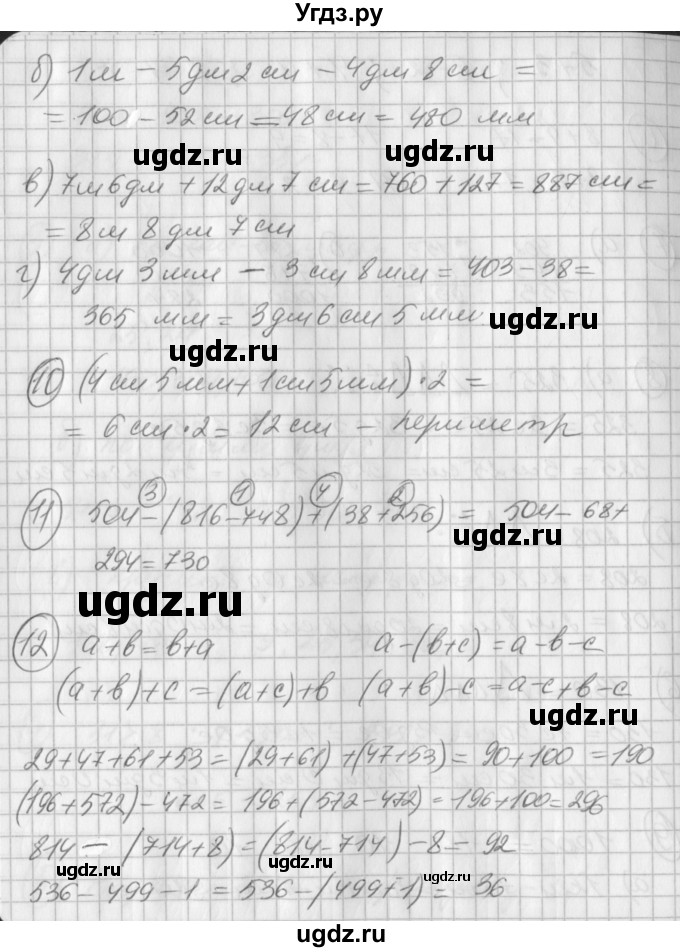 Угдз.ру
б) 1м – 5дм 2 см – 4дм 8 см =
= 100 – 52 см = 48 см = 480 мм
ugdz.ru
ugdz.ru
в) 7м 6дм + 12 дм 7 см = 760 + 127 = 887 см =
= 8м 8 дм 7 см
г) 4дм 3мм – 3 см 8мм = 403 – 38 =
365 мм = 3дм 6 см 5 мм
ugdz.ru
ugdz.ru
10 (4 см 5мм + 1см 5мм) · 2 =
= 6 см · 2 = 12 см – периметр
3 1 4 2
11 504 – (816 – 748) + (38 + 256) = 504 – 68 +
ugdz.ru
294 = 730
ugdz.ru
12 а + в = в + а а – (в + с) = а – в – с
(а + в) + с = (а + с) + в (а + в) – с = а – с + в – с
ugdz.ru
29 + 47 + 61 + 53 = (29 + 61) + (47 + 53) = 90 + 100 = 190
(196 + 572) – 472 = 196 + (572 – 472) = 196 + 100 = 296
814 – (714 + 8) = (814 – 714) – 8 = 92
ugdz.ru
ugdz.ru
536 – 499 – 1 = 536 – (499 + 1) = 36
ugdz.ru